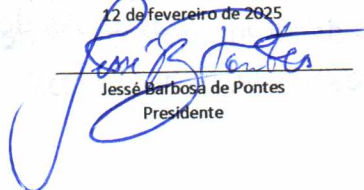 12 de fevereiro de 2025
Jessé B Pontes
Jessé Barbosa de Pontes
Presidente